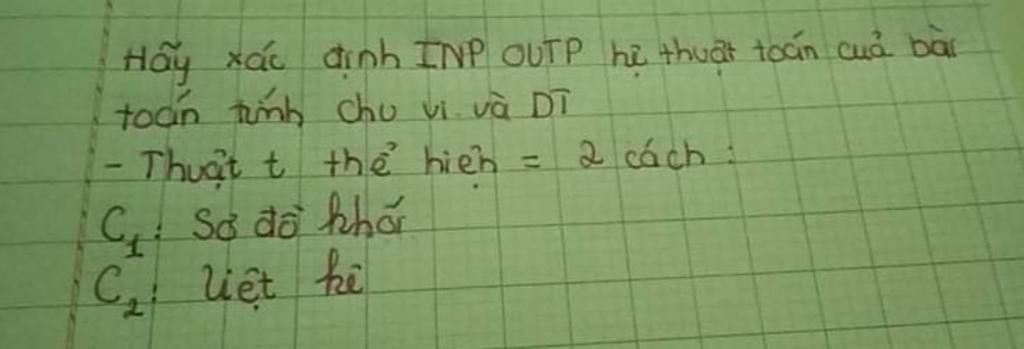 Hãy xác định INP OUTP hệ thuật toán cuả bài
toán tính chu vi và DT
- Thuật t thể hiện = 2 cách :
C1: Sơ đồ khối
C2: Liệt kê